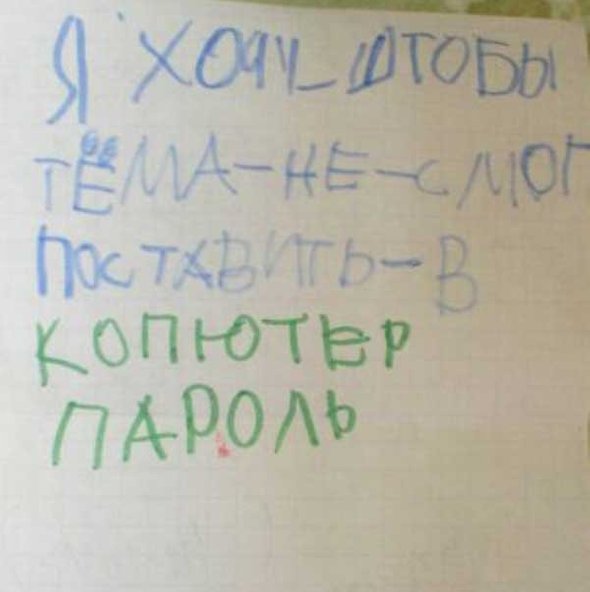 Я ХОЧУ_ШТОБЫ
ТЁМА-НЕ-СМОГ
ПОСТАВИТЬ-В
КОПЮТЕР
ПАРОЛЬ